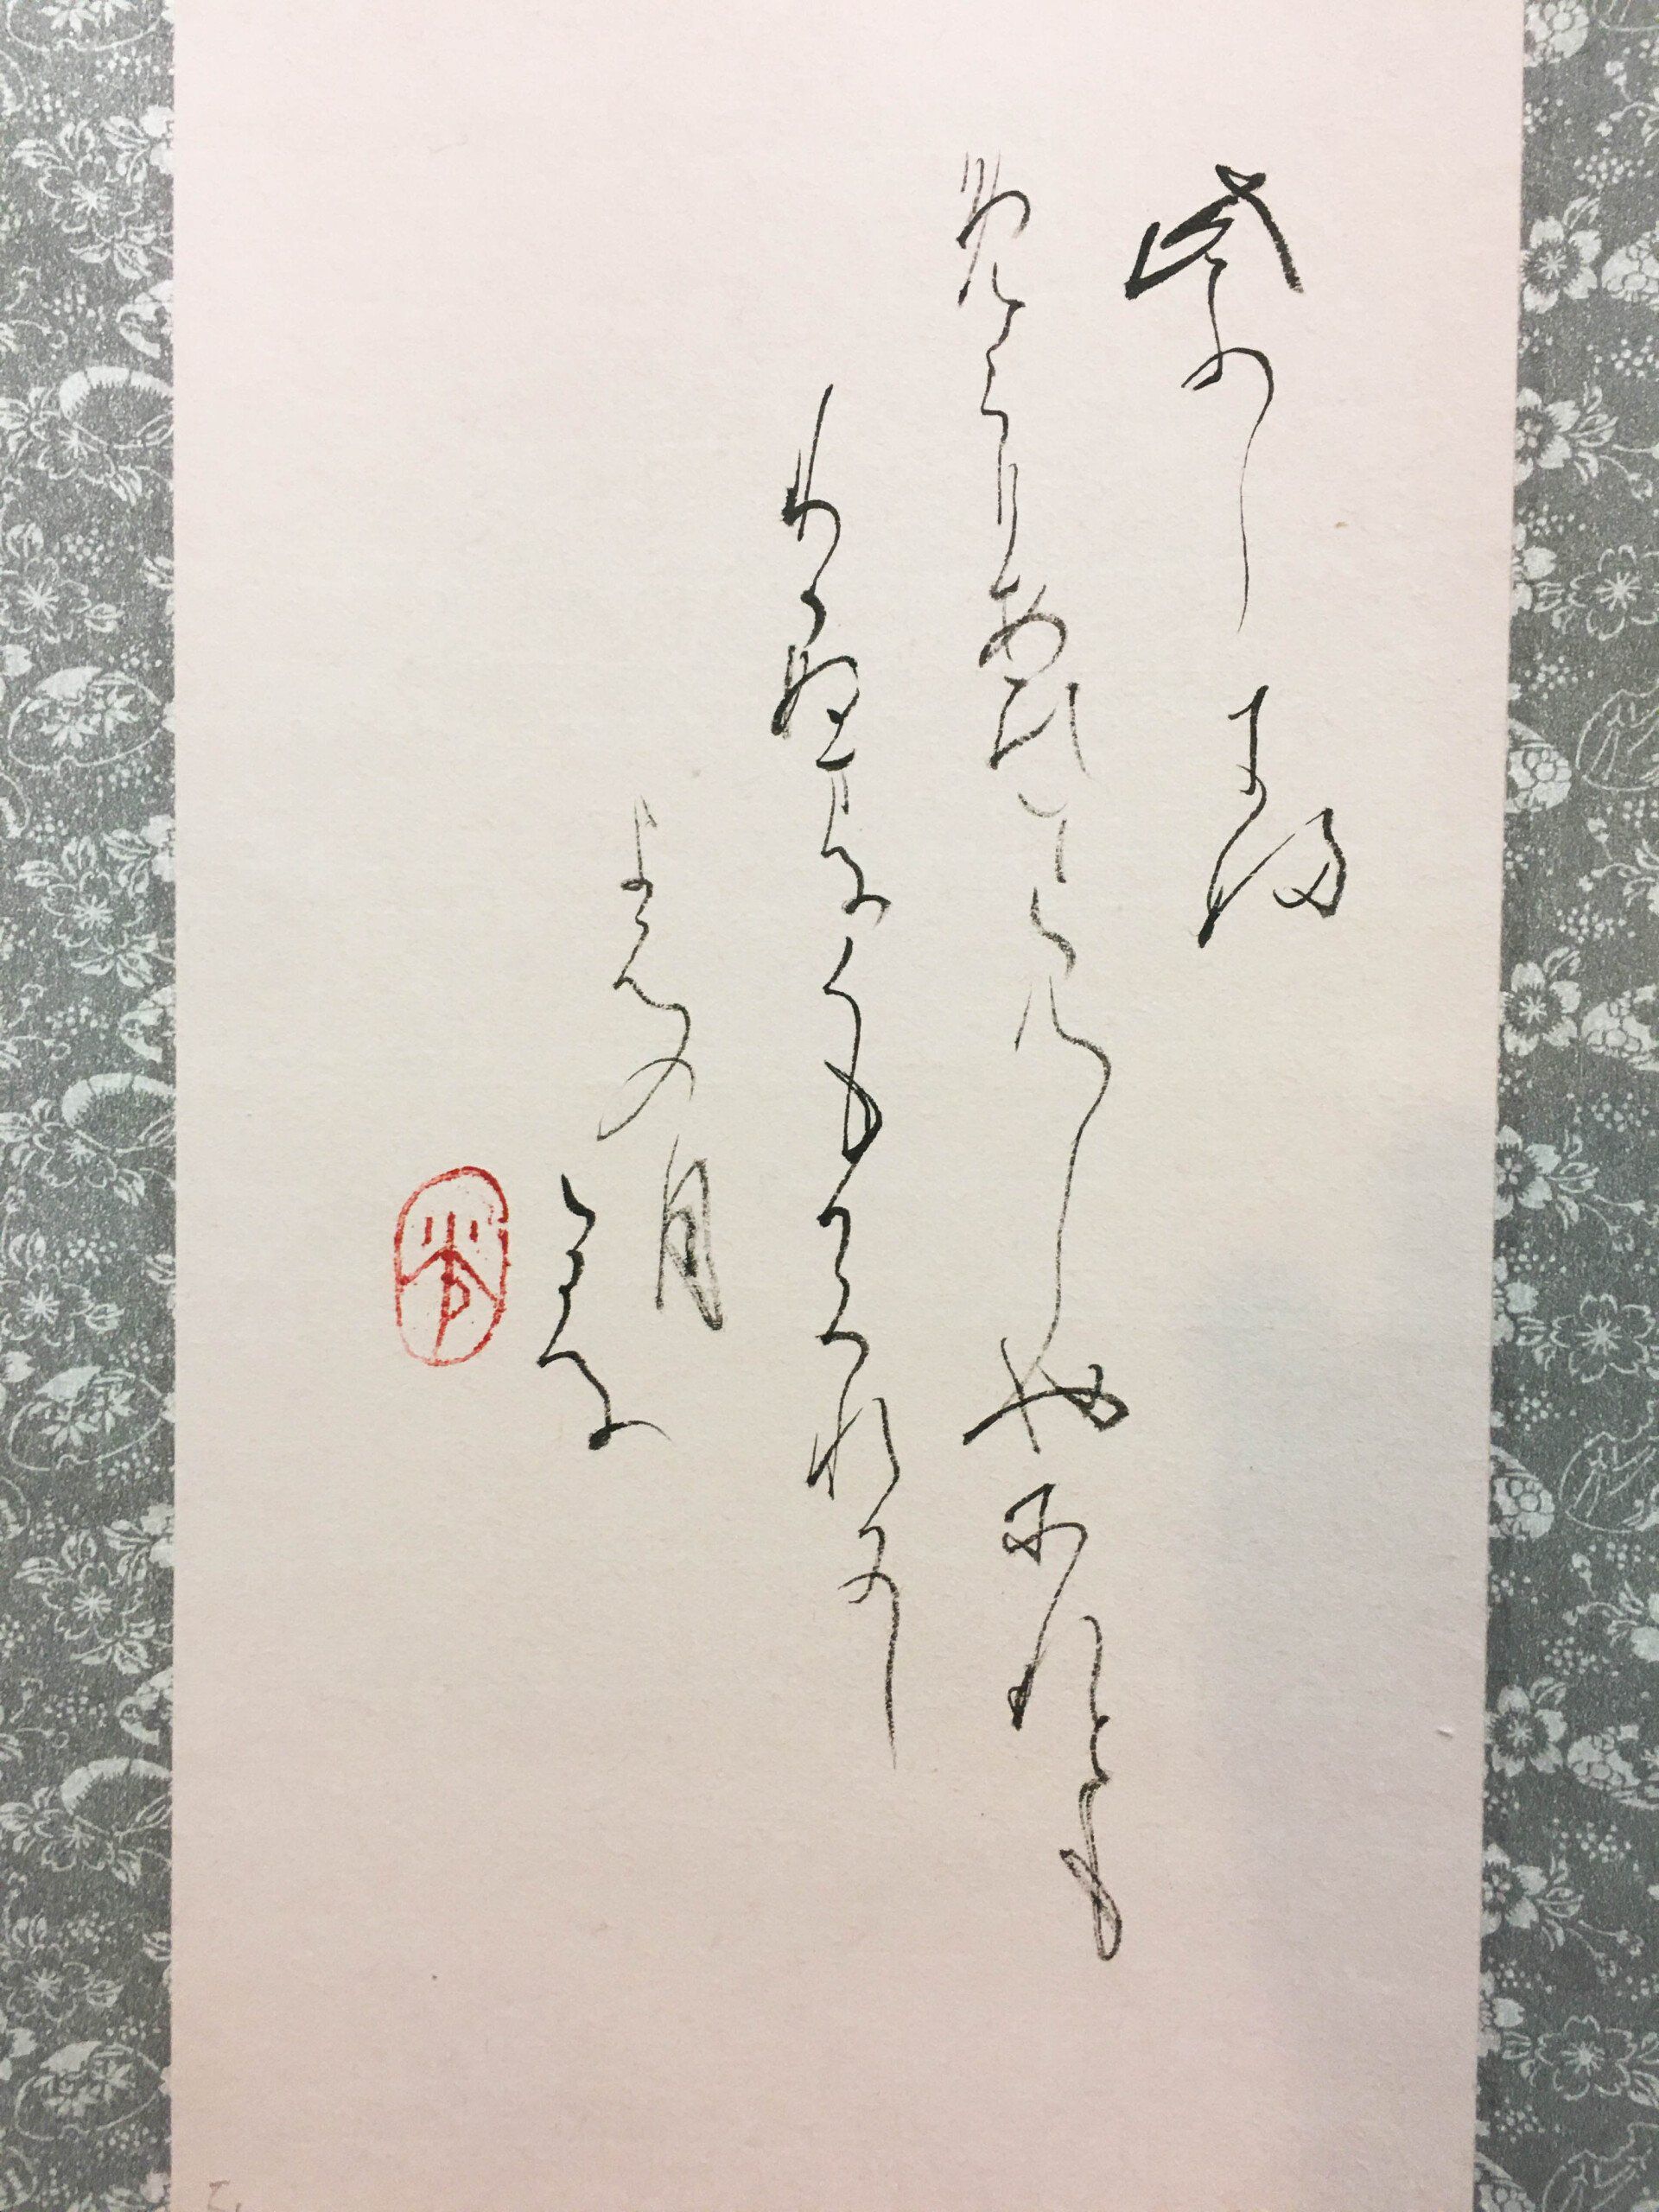 紫のしきふ
めくりあひて見しや所れとも
わかぬまにくもかくれにし
よはの月
かな